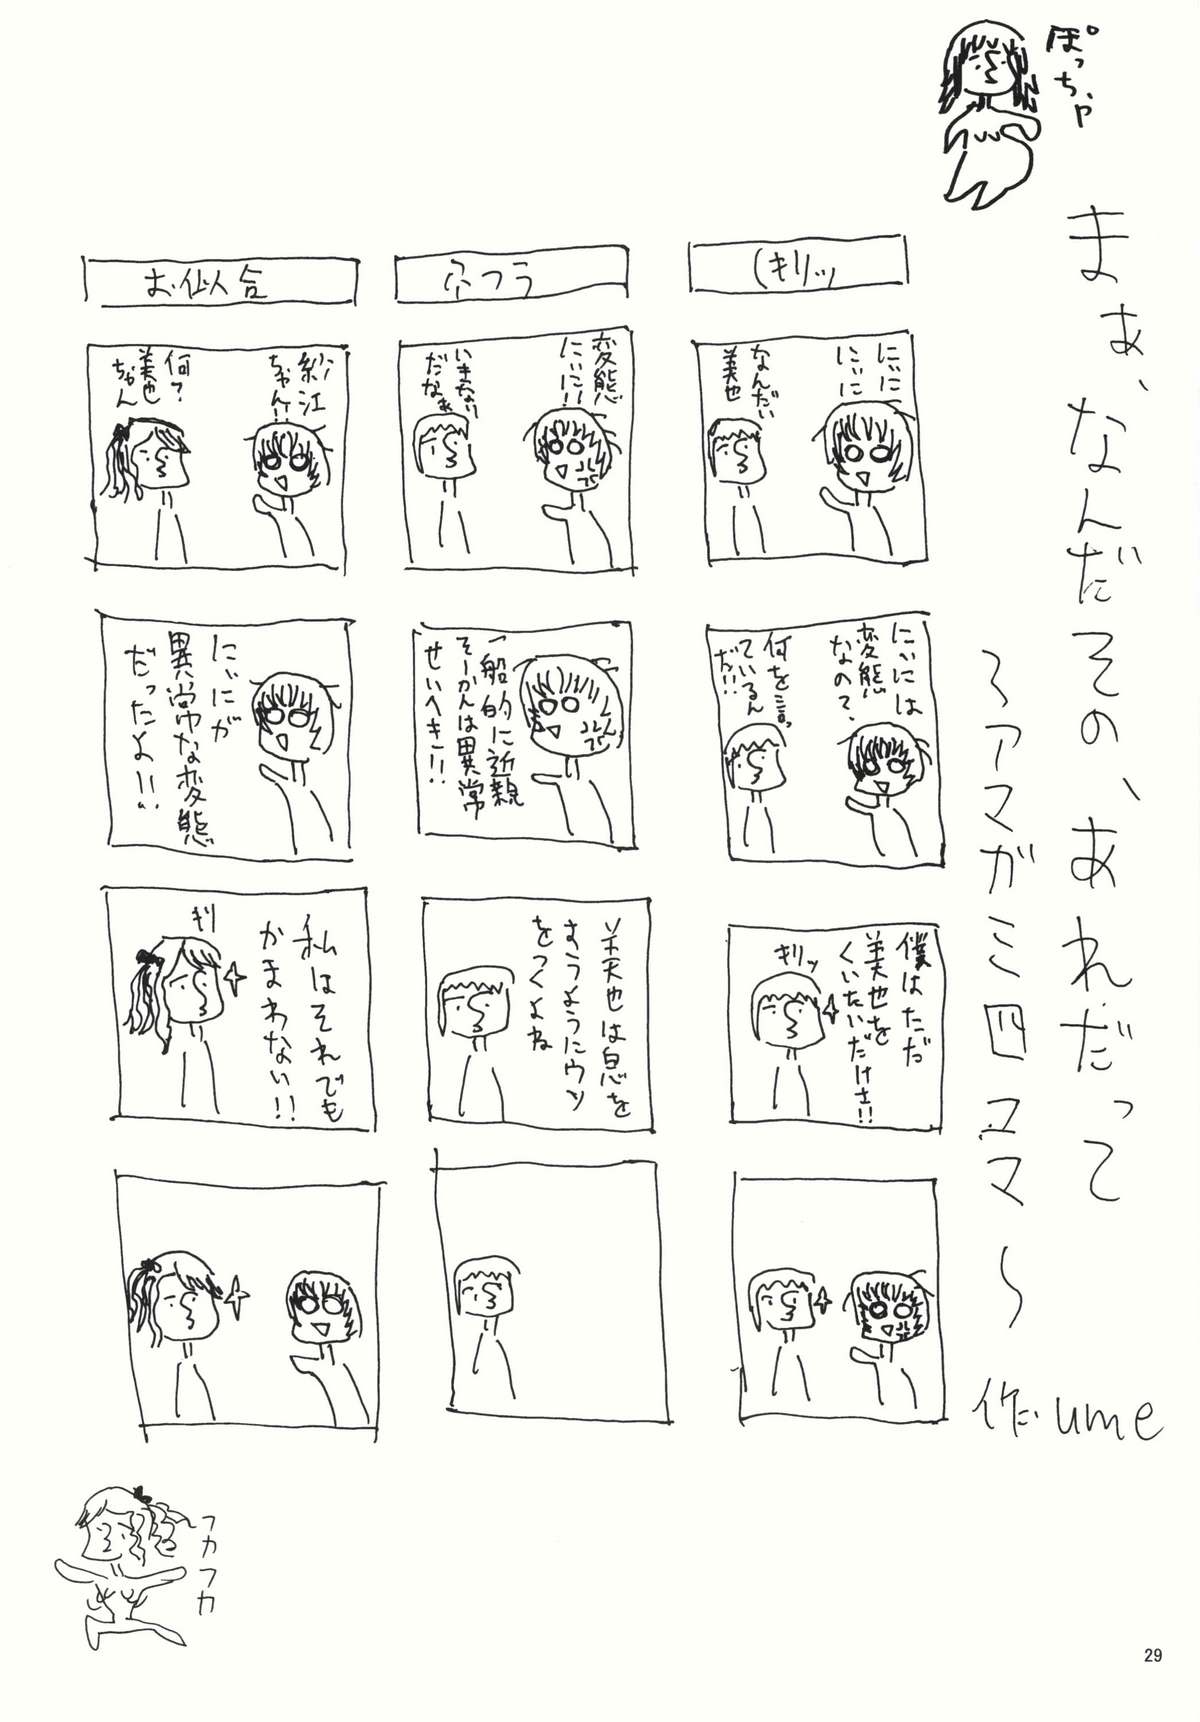 ぽっちゃ
まぁ、なんだその、あれだって
～アマガミ四コマ～
作 ume
(キリッ
にぃに
にぃに
なんだい
美也
にぃには
変態
なので、
何を言っ
ているん
だ!!!
僕はただ
美也を
くいたいだけさ!!
キリッ
変態
にぃに!!
いきなり
だなぁ
一般的に近親
そーかんは異常
せいへき!!
美也は息を
すうようにウソ
をつくよね
お似合
紗江
ちゃん!!
何?
美也
ちゃん
にぃにが
異常な変態
だったよ!!
私はそれでも
かまわない!!
キリ
フカフカ
29